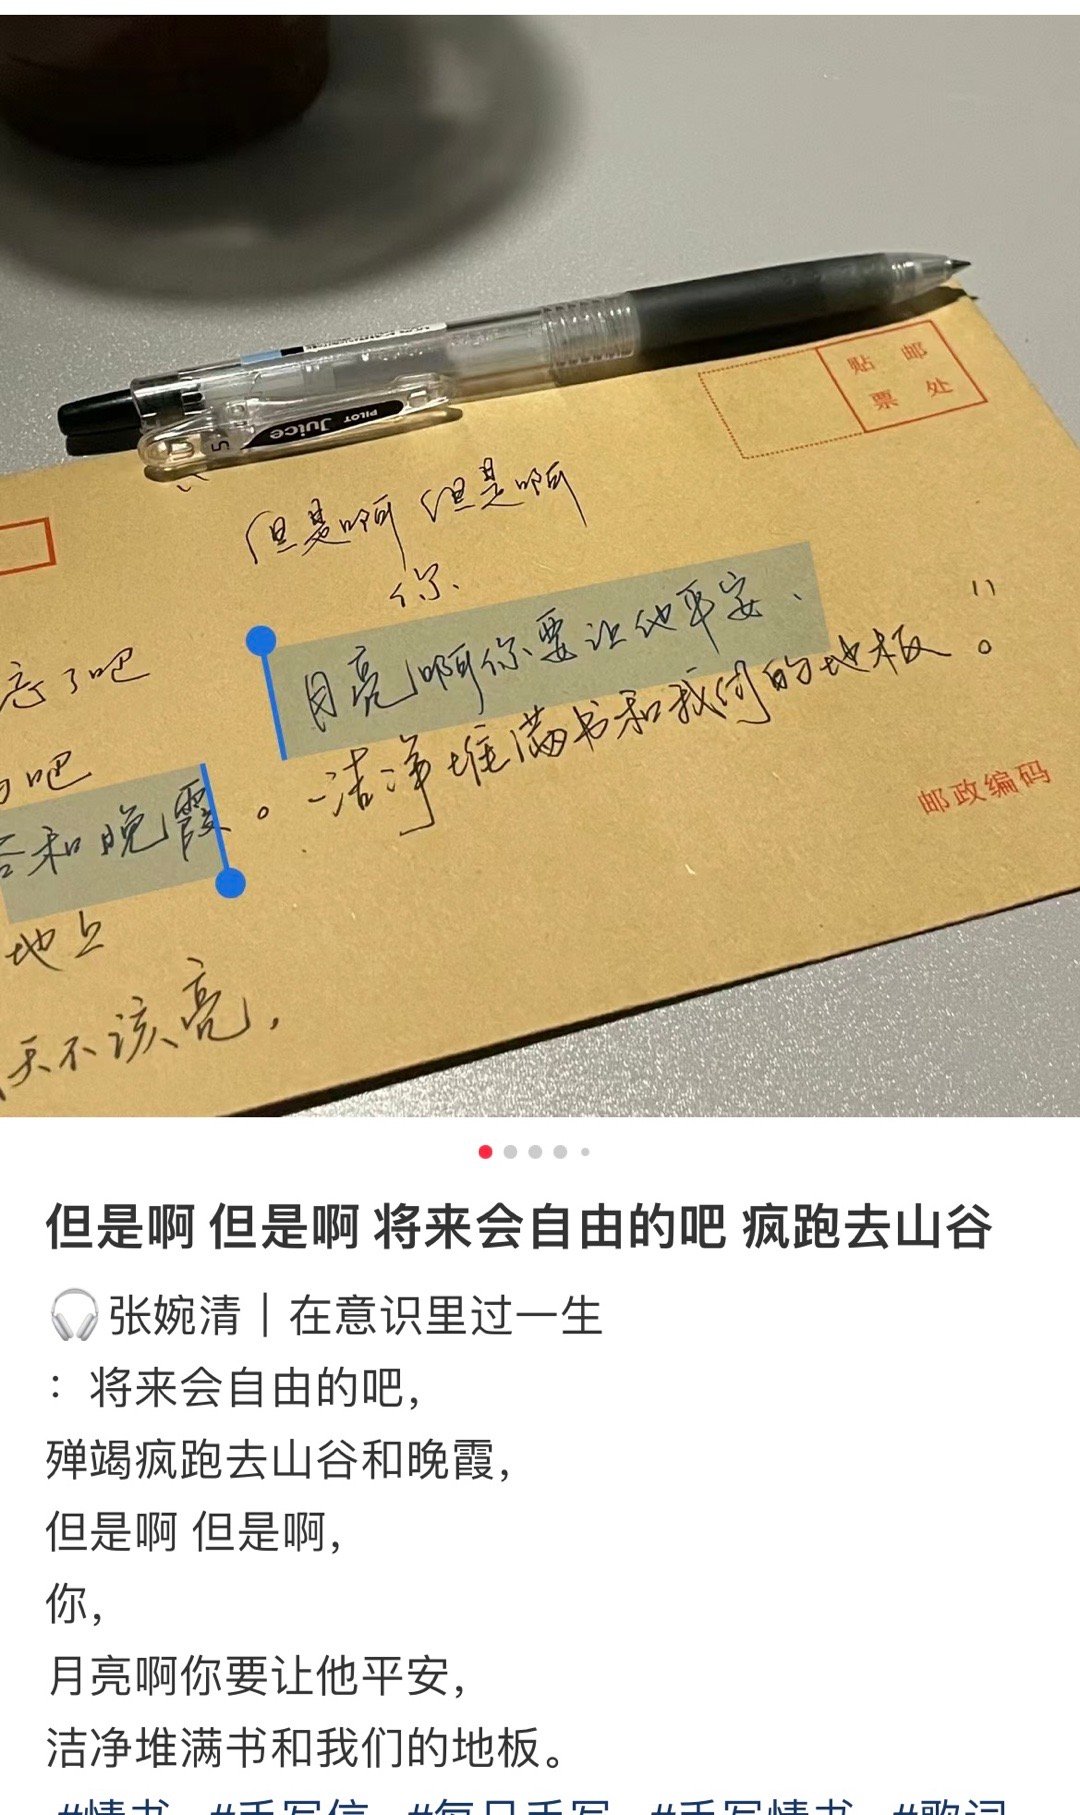 PILOT Juice
贴 邮
票 处
但是啊 但是啊
你、
月亮啊你要让他平安、
洁净堆满书和我们的地板。
"
忘了吧
吧
谷和晚霞。
地上
天不该亮，
邮政编码
但是啊 但是啊 将来会自由的吧 疯跑去山谷
🎧张婉清｜在意识里过一生
：将来会自由的吧，
殚竭疯跑去山谷和晚霞，
但是啊 但是啊，
你，
月亮啊你要让他平安，
洁净堆满书和我们的地板。
#情书 #手写信 #每日手写 #手写情书 #歌词